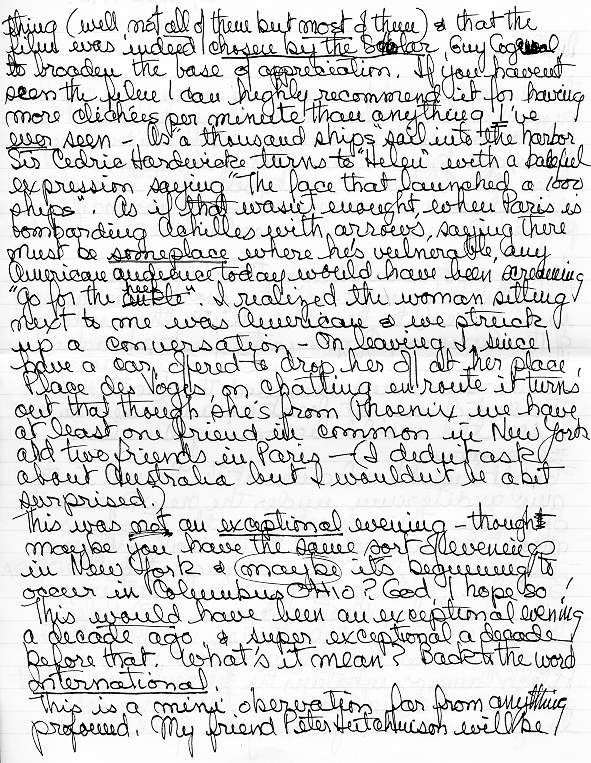 thing (well not all of them but most of them) & that the
film was indeed chosen by the Scholar, Guy Cogeval,
to broaden the base of appreciation. If you havent
seen the film I can highly recommend it for having
more clichées per minute than anything I've
ever seen – As "a thousand ships" sail into the harbor
Sir Cedric Hardwicke turns to "Helen" with a baleful
expression saying "The face that launched a 1000
ships". As if that wasn't enough, when Paris is
bombarding Achilles with arrows, saying there
must be someplace where he's vulnerable, any
American audience today would have been screaming
"Go for the heel". I realized the woman sitting
next to me was American & we struck
up a conversation – On leaving I, since I
have a car, offered to drop her off at her place,
Place des Voges, on chatting en route it turns
out that though she's from Phoenix we have
at least one friend in common in New York
and two friends in Paris – (I didn't ask
about Australia but I wouldn't be a bit
surprised.)
This was not an exceptional evening – though
maybe you have the same sort of evenings
in New York & maybe its beginning to
occur in Columbus OHIO? God, I hope so!
This would have been an exceptional evening
a decade ago & super exceptional a decade
before that. What's it mean? Back to the word
international.
This is a mini obervation far from anything
profound. My friend Peter Hutchinson will be